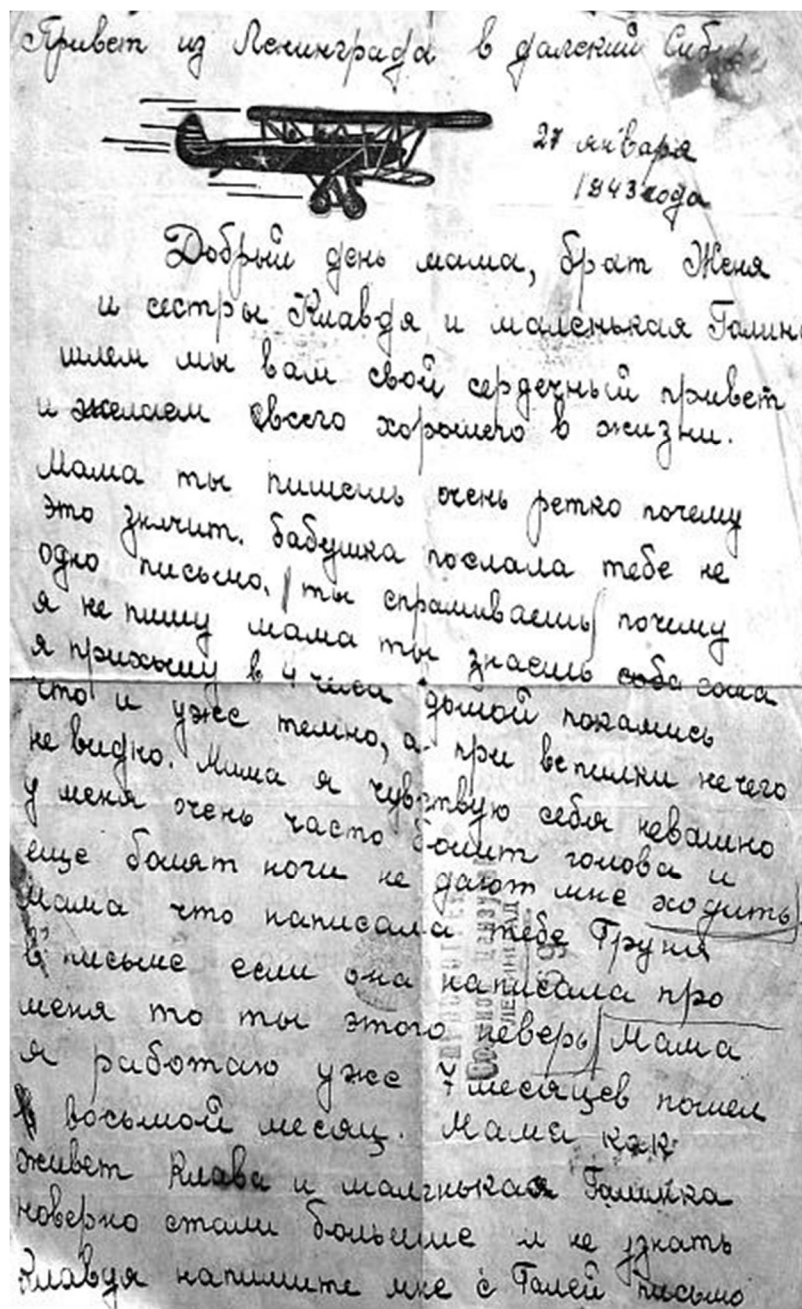 Привет из Ленинграда в далский
27 января
1943 года
Добрый день мама, брат Женя
и сестры Клавдя и маленькая Галинка
шлем мы вам свой сердечный привет
и желаем всего хорошего в жизни.
Мама ты пишешь очень ретко почему
это значит. бабушка послала тебе не
одно письмо. ты спрашиваешь почему
я не пишу мама ты знаешь сама
я прихожу в 4 часа домой покамись
что и уже темно, а при вспилки нечего
не видно. Мама я чувствую себя неважно
у меня очень часто болит голова и
еще болят ноги не дают мне ходить
Мама что написала тебе Груня
в письме если она написала про
меня то ты этого неверь Мама
я работаю уже 7 месяцев пошел
восьмой месяц. Мама как
живет Клава и маленькая Галинка
новерно стали большие и не узнать
Клавдя напишите мне с Галей письмо
ПРОСМОТРЕНО
Военной Цензурой
ЛЕНИНГРАД